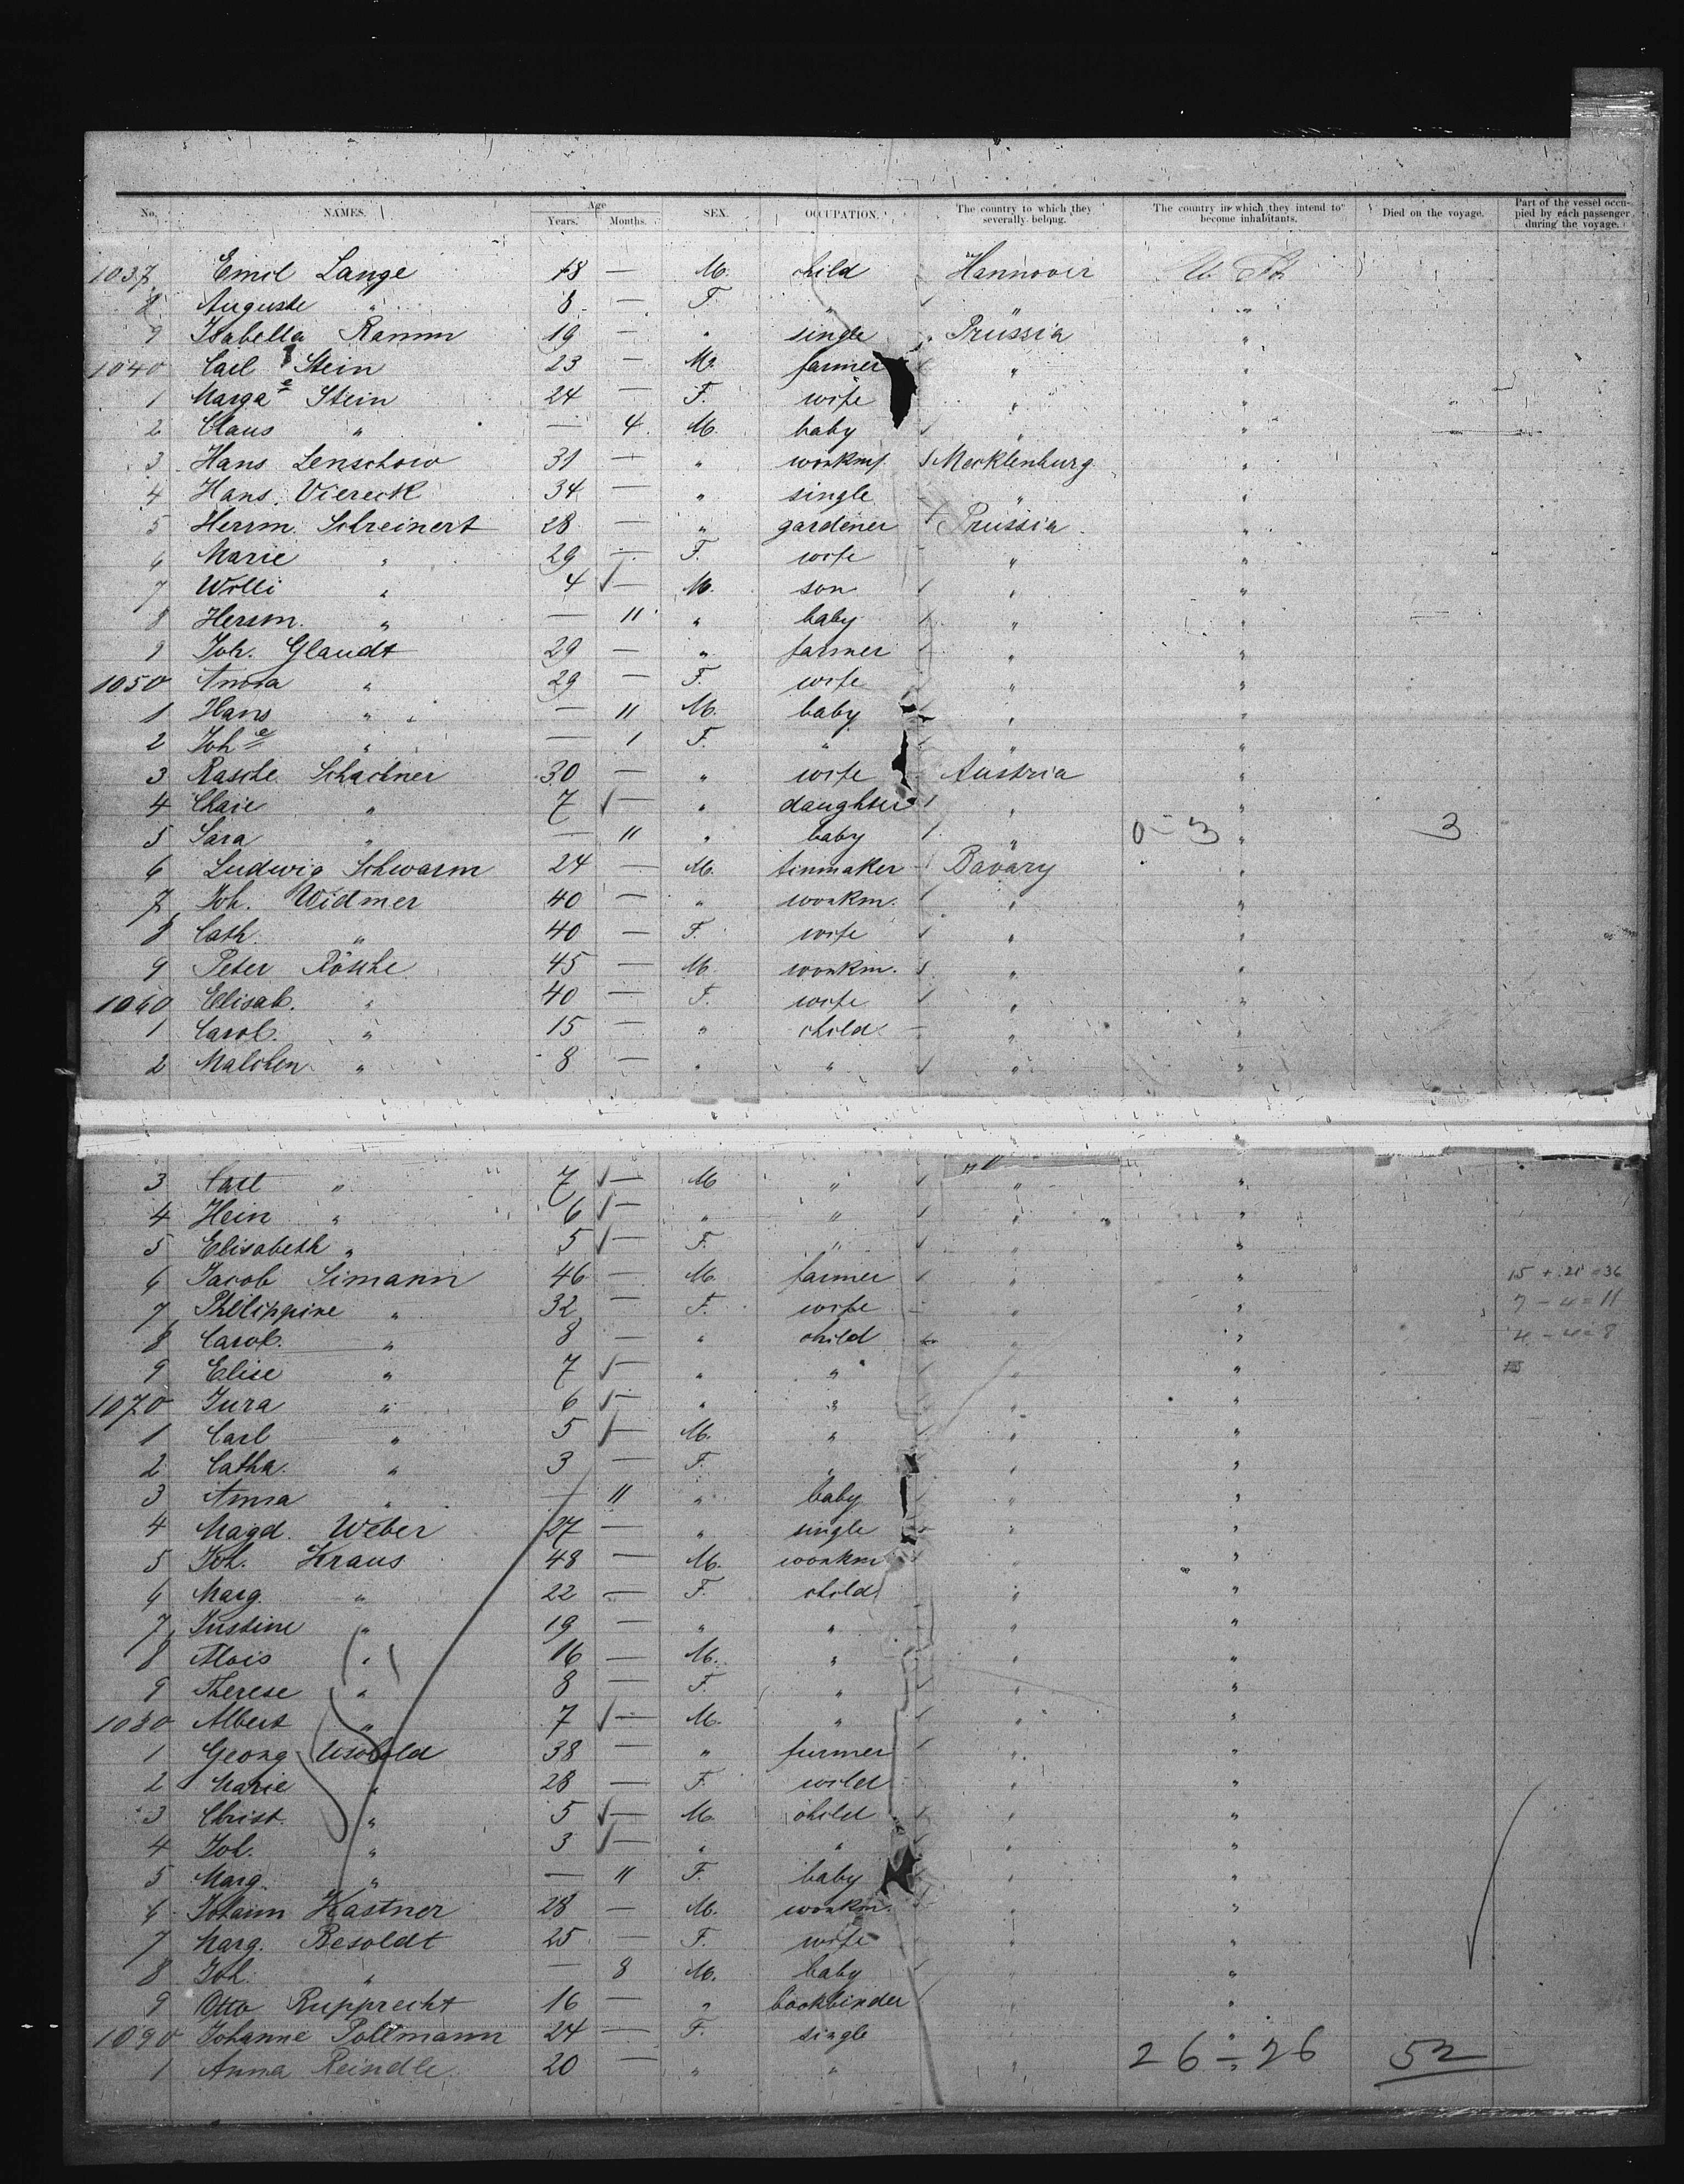 No. NAMES. Age Years. Months. SEX. OCCUPATION. The country to which they severally belong. The country in which they intend to become inhabitants. Died on the voyage. Part of the vessel occupied by each passenger during the voyage.
1037 Emil Lange 18 — M. child Hannover U. St.
8 Auguste " 8 — F. " " "
9 Isabella Ramm 19 — " single Prüssia "
1040 Carl Stein 23 — M. farmer " "
1 Marga e Stein 24 — F. wife " "
2 Claus " — 4 M. baby " "
3 Hans Lenschow 31 — " workm. Mecklenburg "
4 Hans Viereck 34 — " single " "
5 Herrm. Schreinert 28 — " gardener Prussia "
6 Marie " 29 — F. wife " "
7 Willi " 4 — M. son " "
8 Herrm. " — 11 " baby " "
9 Joh. Glaudt 29 — " farmer " "
1050 Anna " 29 — F. wife " "
1 Hans " — 11 M. baby " "
2 Joh e " — 1 F. " " "
3 Rasche Schachner 30 — " wife Austria "
4 Chaie " 7 — " daughter " "
5 Sara " — 11 " baby " 0 - 3 " 3
6 Ludwig Schwarm 24 — M. tinmaker Bavary "
7 Joh. Widmer 40 — " workm. " "
8 Cath. " 40 — F. wife " "
9 Peter Rösche 45 — M. workm. " "
1060 Elisab. " 40 — F. wife " "
1 Carol. " 15 — " child " "
2 Malchen " 8 — " " " "
3 Carl " 7 — M " " "
4 Hein " 6 — " " " "
5 Elisabeth " 5 — F. " " "
6 Jacob Simann 46 — M. farmer " " 15 + 21 = 36
7 Philippine " 32 — F. wife " " 7 - 4 = 11
8 Carol. " 8 — " child " " 4 - 4 = 8
9 Elise " 7 — " " " "
1070 Jura " 6 — " " " "
1 Carl " 5 — M. " " "
2 Catha. " 3 — F. " " "
3 Anna " — 11 " baby " "
4 Magd. Weber 27 — " single " "
5 Joh. Kraus 48 — M. workm " "
6 Marg. " 22 — F. child " "
7 Justine " 19 — " " " "
8 Alois " 16 — M. " " "
9 Therese " 8 — F. " " "
1080 Albert " 7 — M. " " "
1 Georg 38 — " farmer " "
2 Marie " 28 — F. wild " "
3 Christ. " 5 — M. child " "
4 Joh. " 3 — " " " "
5 Marg. " — 11 F. baby " "
6 Johann Kastner 28 — M. workm. " "
7 Marg. Besoldt 25 — F. wife " "
8 Joh. " — 8 M. baby " "
9 Otto Rupprecht 16 — " bookbinder " "
1090 Johanne Pollmann 24 — F. single " "
1 Anna Reindle 20 — " " " 26 - 26 52